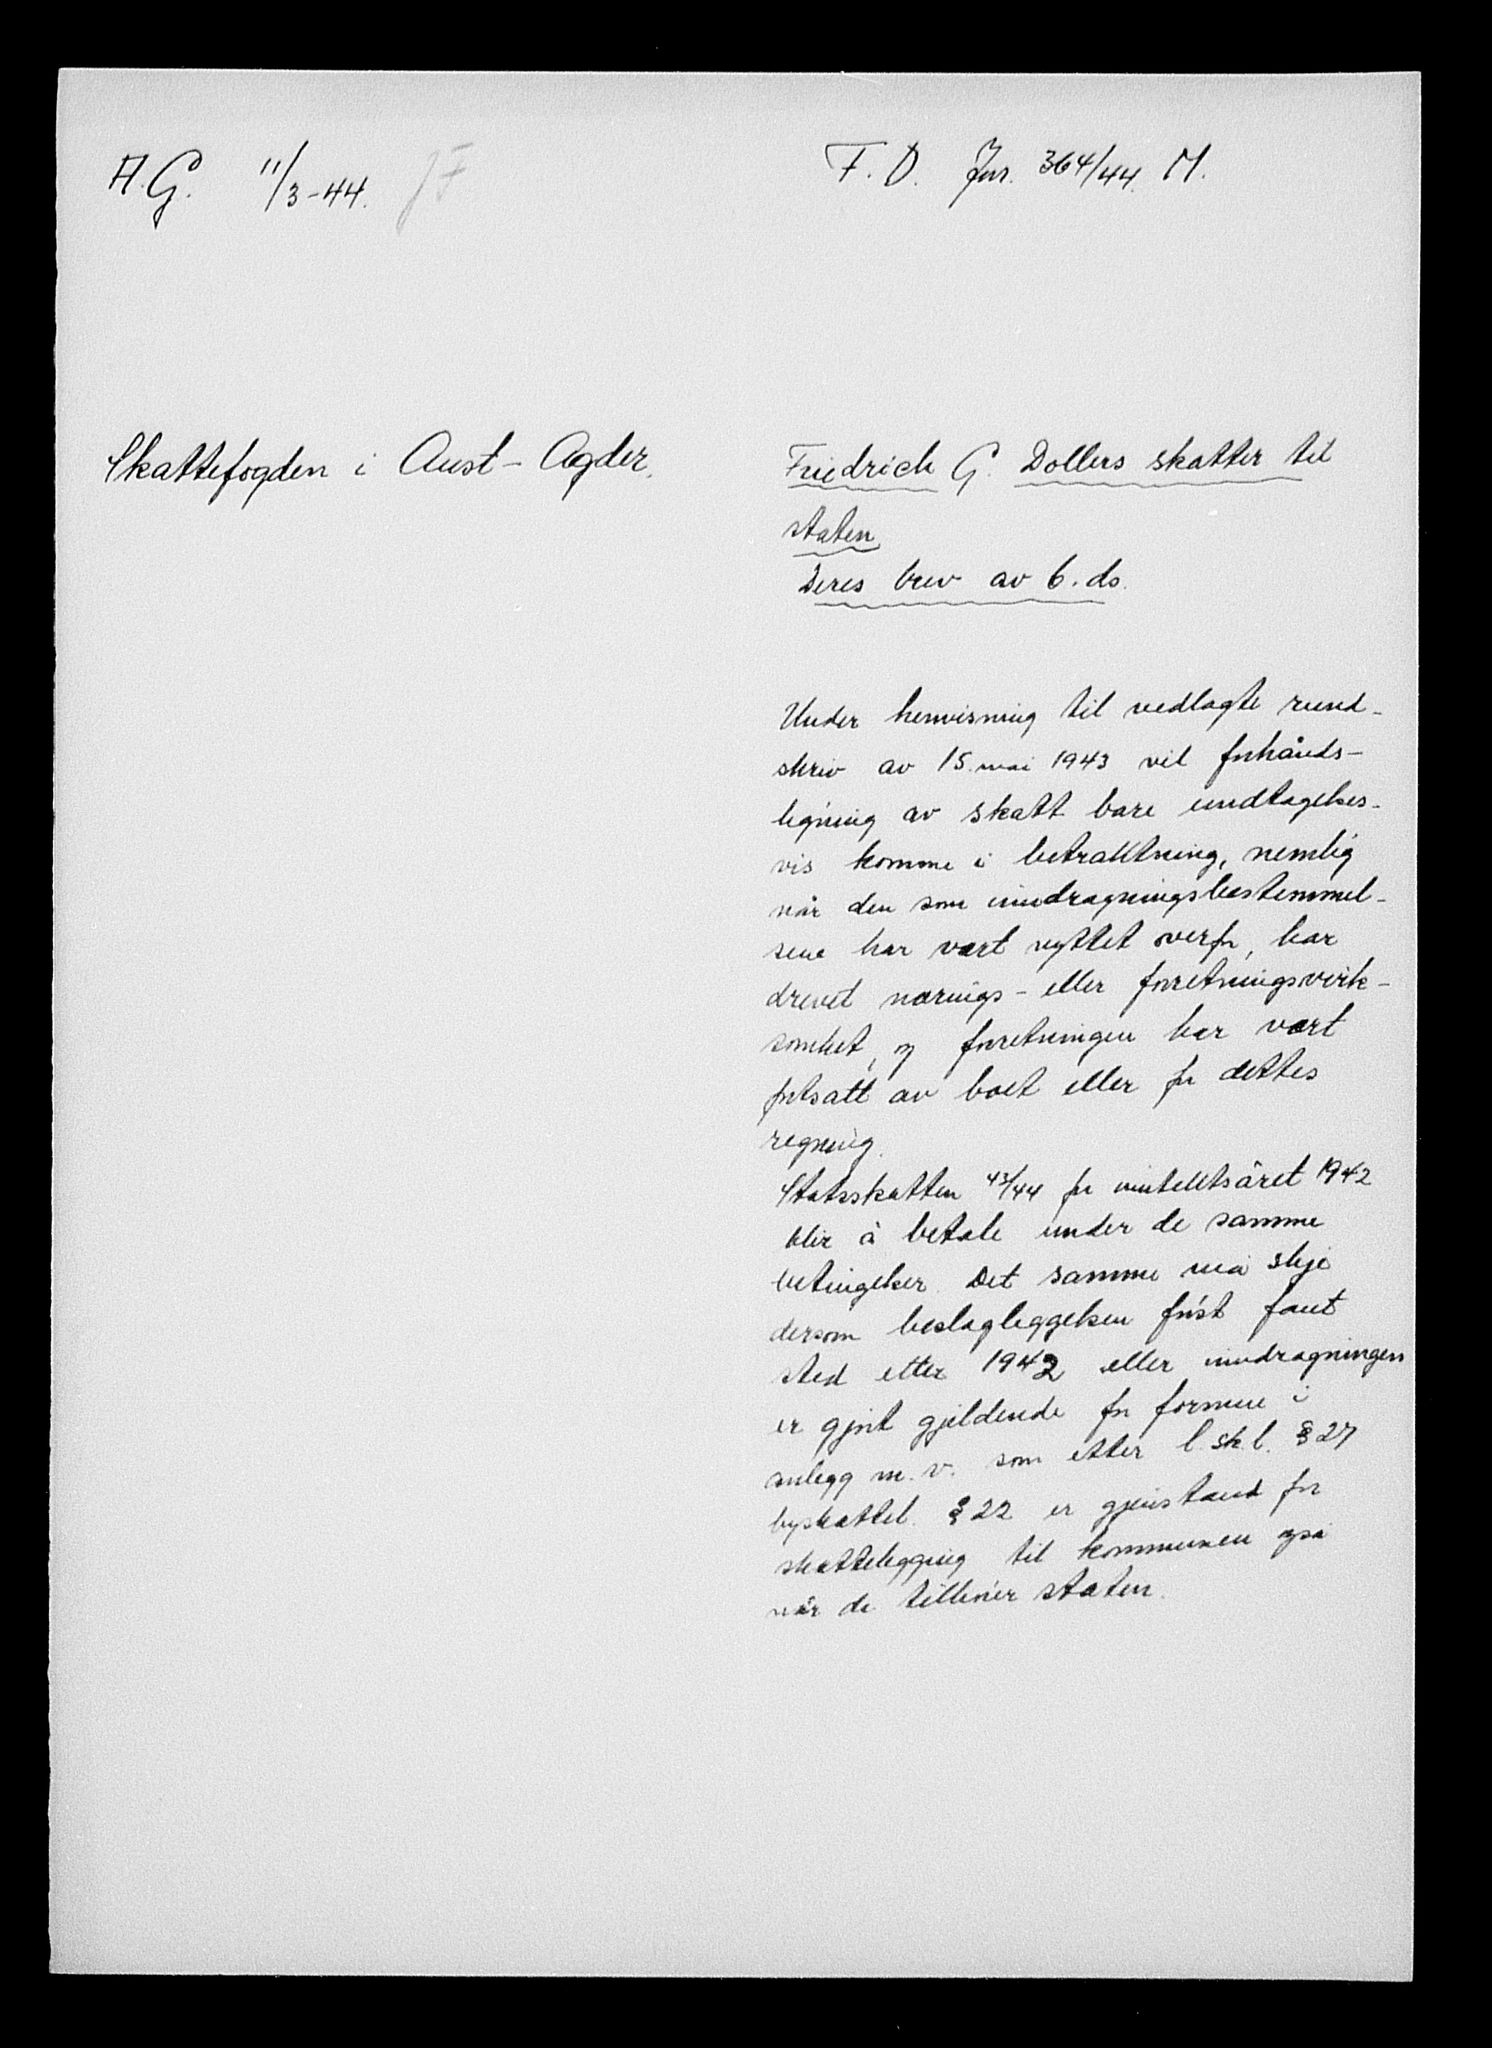 A.G. 11/3-44. JF
F.D. Jnr. 364/44 M.
Skattefogden i Aust-Agder.
Friedrich G. Dollers skatter til
staten
Deres brev av 6. ds.
Under henvisning til vedlagte rund-
skriv av 15. mai 1943 vil forhånds-
ligning av skatt bare undtagelses-
vis komme i betraktning, nemlig
når den som inndragningsbestemmel-
sene har vært nyttet overfor, har
drevet nærings- eller forretningsvirk-
somhet, og forretningen har vært
fortsatt av boet eller for dettes
regning.
Statsskatten 43/44 for inntektsåret 1942
blir å betale under de samme
betingelser. Det samme må skje
dersom beslagleggelsen først fant
sted etter 1942 eller inndragningen
er gjort gjeldende for formue i
anlegg m.v. som etter l.sk.l. § 27
byskattel. § 22 er gjenstand for
skattelegging til kommunen også
når de tilhører staten.